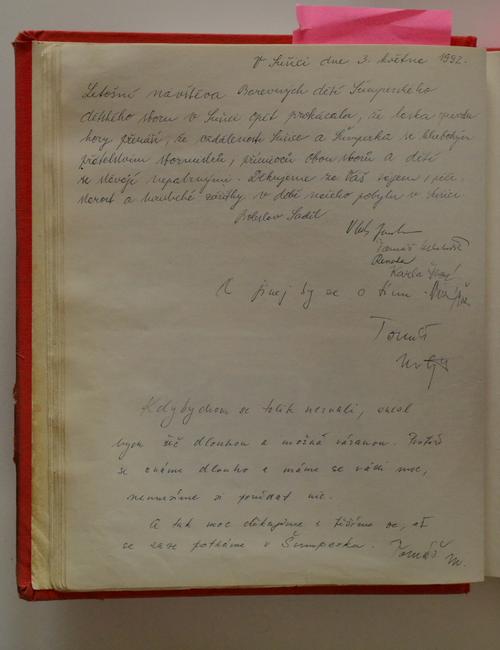 V Sušici dne 3. května 1992.
Letošní návštěva Barevných dětí Šumperského
dětského sboru v Sušici opět prokázala, že láska opravdu
hory přenáší, že vzdálenosti Sušice a Šumperka se hlubokým
přátelstvím sbormistrů, příznivců obou sborů a dětí
se stávají nepatrnými. Děkujeme za Váš zájem, péči,
starost a hudební zážitky v době našeho pobytu v Sušici.
Boleslav Sadil
Tomáš
Renata
Karla
A jinej by se s tím
Tomáš
Kdybychom se tolik neznali, musel
bych řeč dlouhou a možná vázanou. Protože
se známe dlouho a máme se rádi moc,
nemusíme si povídat nic.
A tak moc děkujeme a těšíme se, až
se zase potkáme v Šumperku. Tomáš M.